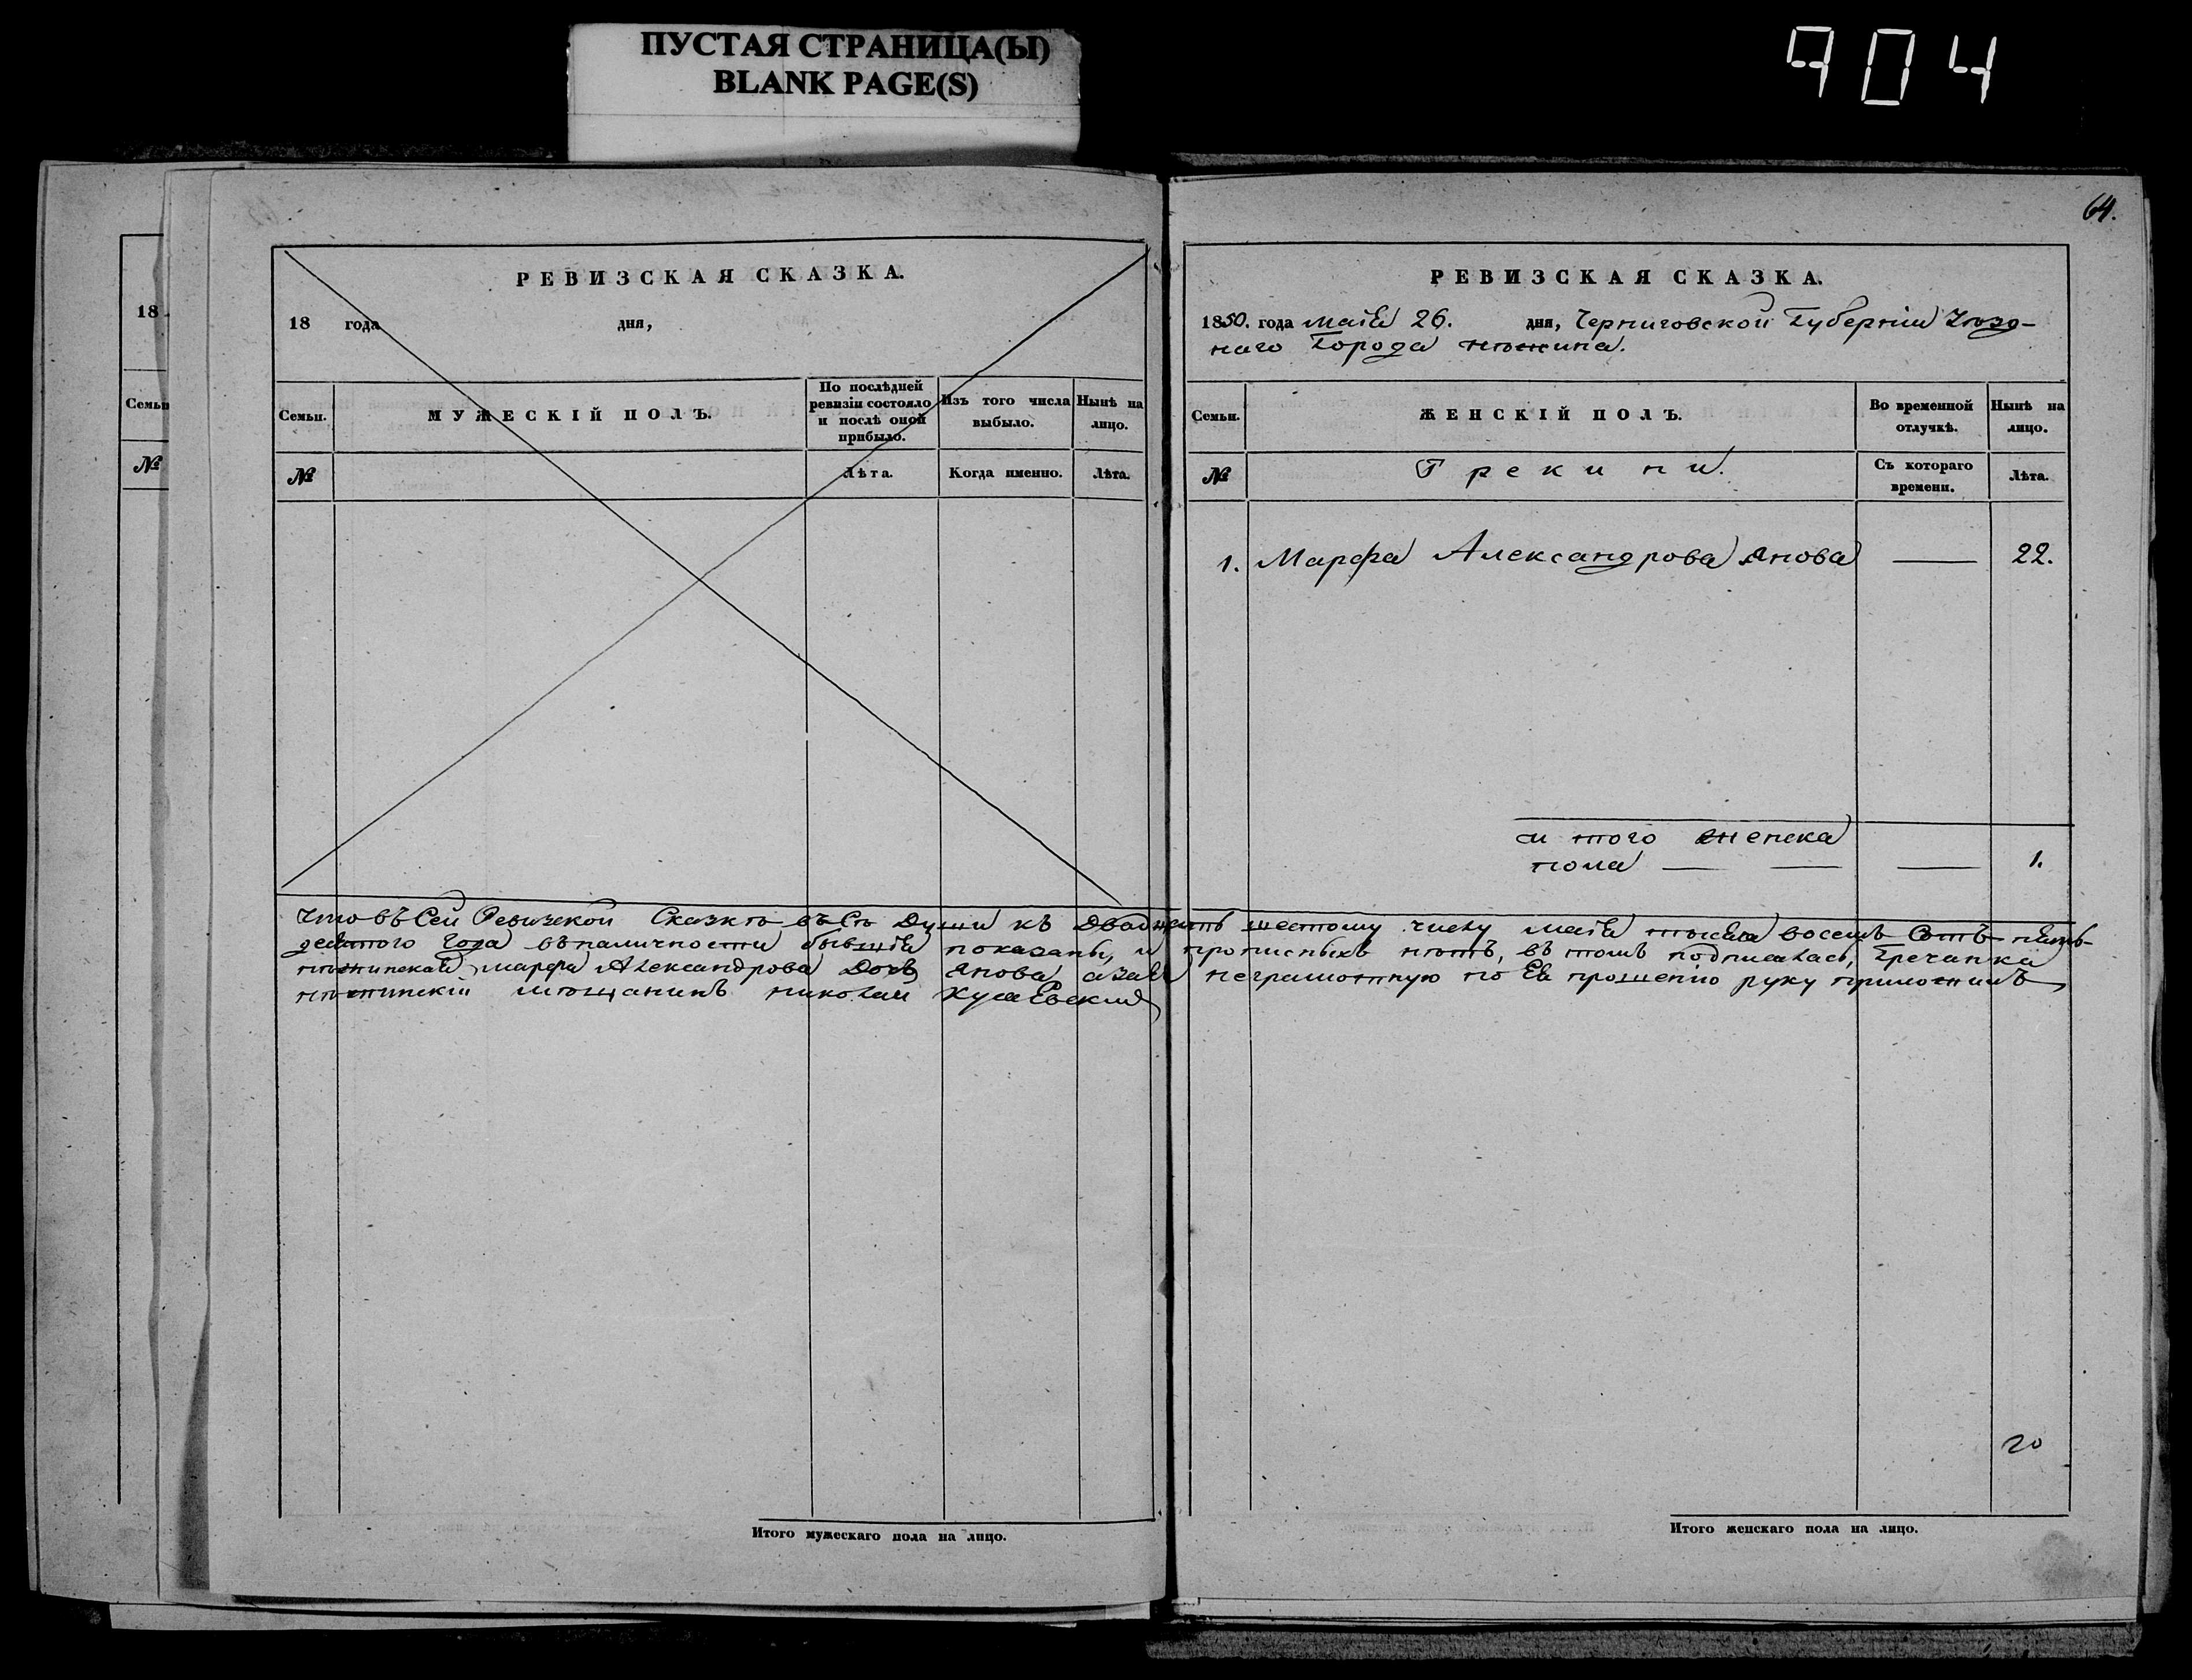 ПУСТАЯ СТРАНИЦА(Ы)
BLANK PAGE(S)
904
18
Семьи
№
РЕВИЗСКАЯ СКАЗКА.
18 года дня,
Семьи. МУЖЕСКІЙ ПОЛЪ. По послѣдней ревизіи состояло и послѣ оной прибыло. Изъ того числа выбыло. Нынѣ на лицо.
№ Лѣта. Когда именно. Лѣта.
64.
РЕВИЗСКАЯ СКАЗКА.
1850. года маія 26. дня, Черниговской Губерніи Уѣзд-
наго Города нѣжина.
Семьи. ЖЕНСКІЙ ПОЛЪ. Во временной отлучкѣ. Нынѣ на лицо.
№ Грекини. Съ котораго времени. Лѣта.
1. Марфа Александрова Янова — 22.
и того женска
пола — — — 1.
Что въ Сей Ревизской Сказкѣ въсѣ Души къ Двадцать шестому числу маія тысяча восемь Сотъ пять-
десятого Года въ наличности бывшія показаны, и прописныхъ нѣтъ, въ томъ подписалась, Гречанка
нѣжинская марфа Александрова Дочь Янова азаея неграмотную по Ея прошенію руку приложилъ
нѣжинскій мѣщанинъ николай
20
Итого мужескаго пола на лицо.
Итого женскаго пола на лицо.